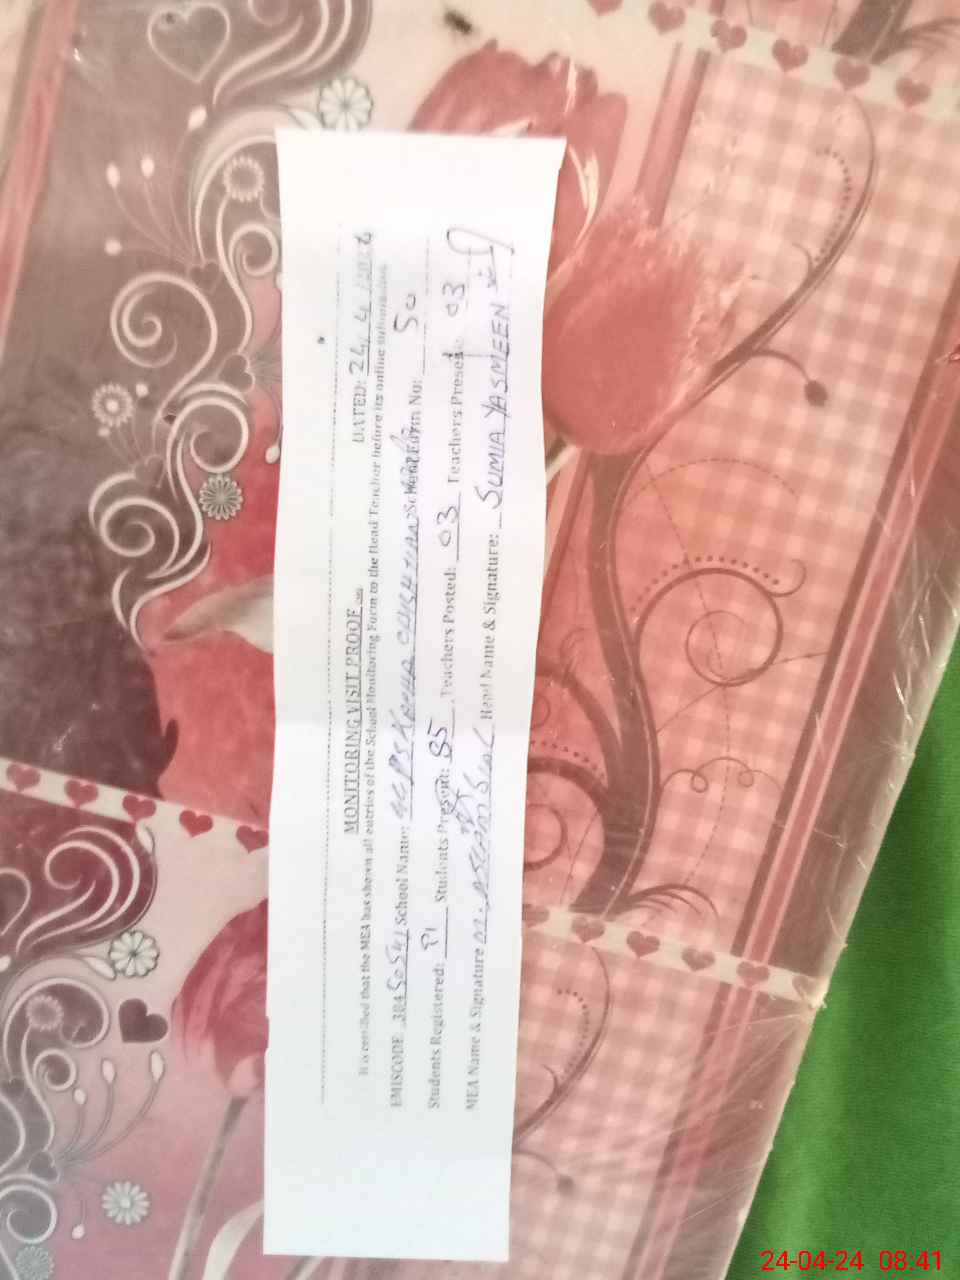 MONITORING VISIT PROOF
DATED: 24/4/2024
It is certified that the MEA has shown all entries of the School Monitoring Form to the Head Teacher before its online submission.
EMISCODE 38450541 School Name: School Form No: 50
Students Registered: Students Present: 85 Teachers Posted: 03 Teachers Present: 03
MEA Name & Signature M. ASLAM Head Name & Signature: SUMIA YASMEEN
24-04-24 08:41